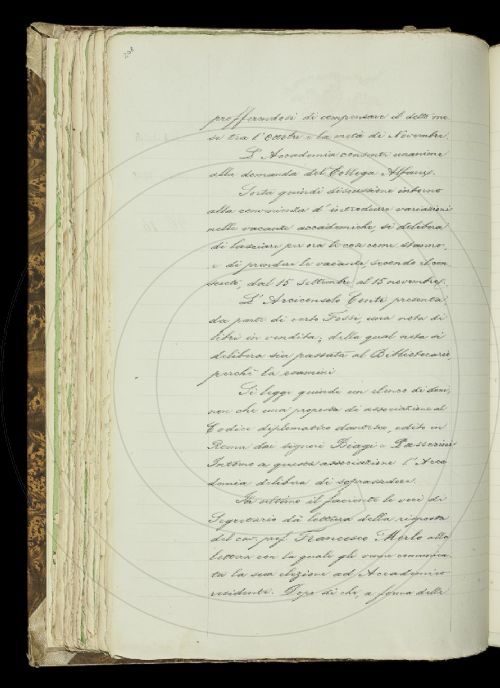 208
profferendosi di compensare il detto me
se tra l'Ottobre e la metà di Novembre.
L'Accademia consente unanime
alla domanda del Collega Alfani.
Sorta quindi discussione intorno
alla convenienza d'introdurre variazioni
nelle vacanze accademiche, si delibera
di lasciare per ora le cose come stanno,
e di prendere le vacanze, secondo il con
sueto, dal 15 Settembre al 15 novembre.
L'Arciconsolo Conti presenta,
da parte di certo Fossi, una nota di
libri in vendita; della qual nota si
delibera sia passata al Bibliotecario
perché la esamini.
Si legge quindi un elenco di doni,
non che una proposta di associazione al
Codice diplomatico dantesco, edito in
Roma dai signori Biagi e Passerini
Intorno a questa associazione l'Acca
demia delibera di soprassedere.
In ultimo il facente le veci di
Segretario dà lettura della risposta
del cav. prof. Francesco Merlo alla
lettera con la quale gli venne comunica
ta la sua elezione ad Accademico
residente. Dopo di che, a forma delle